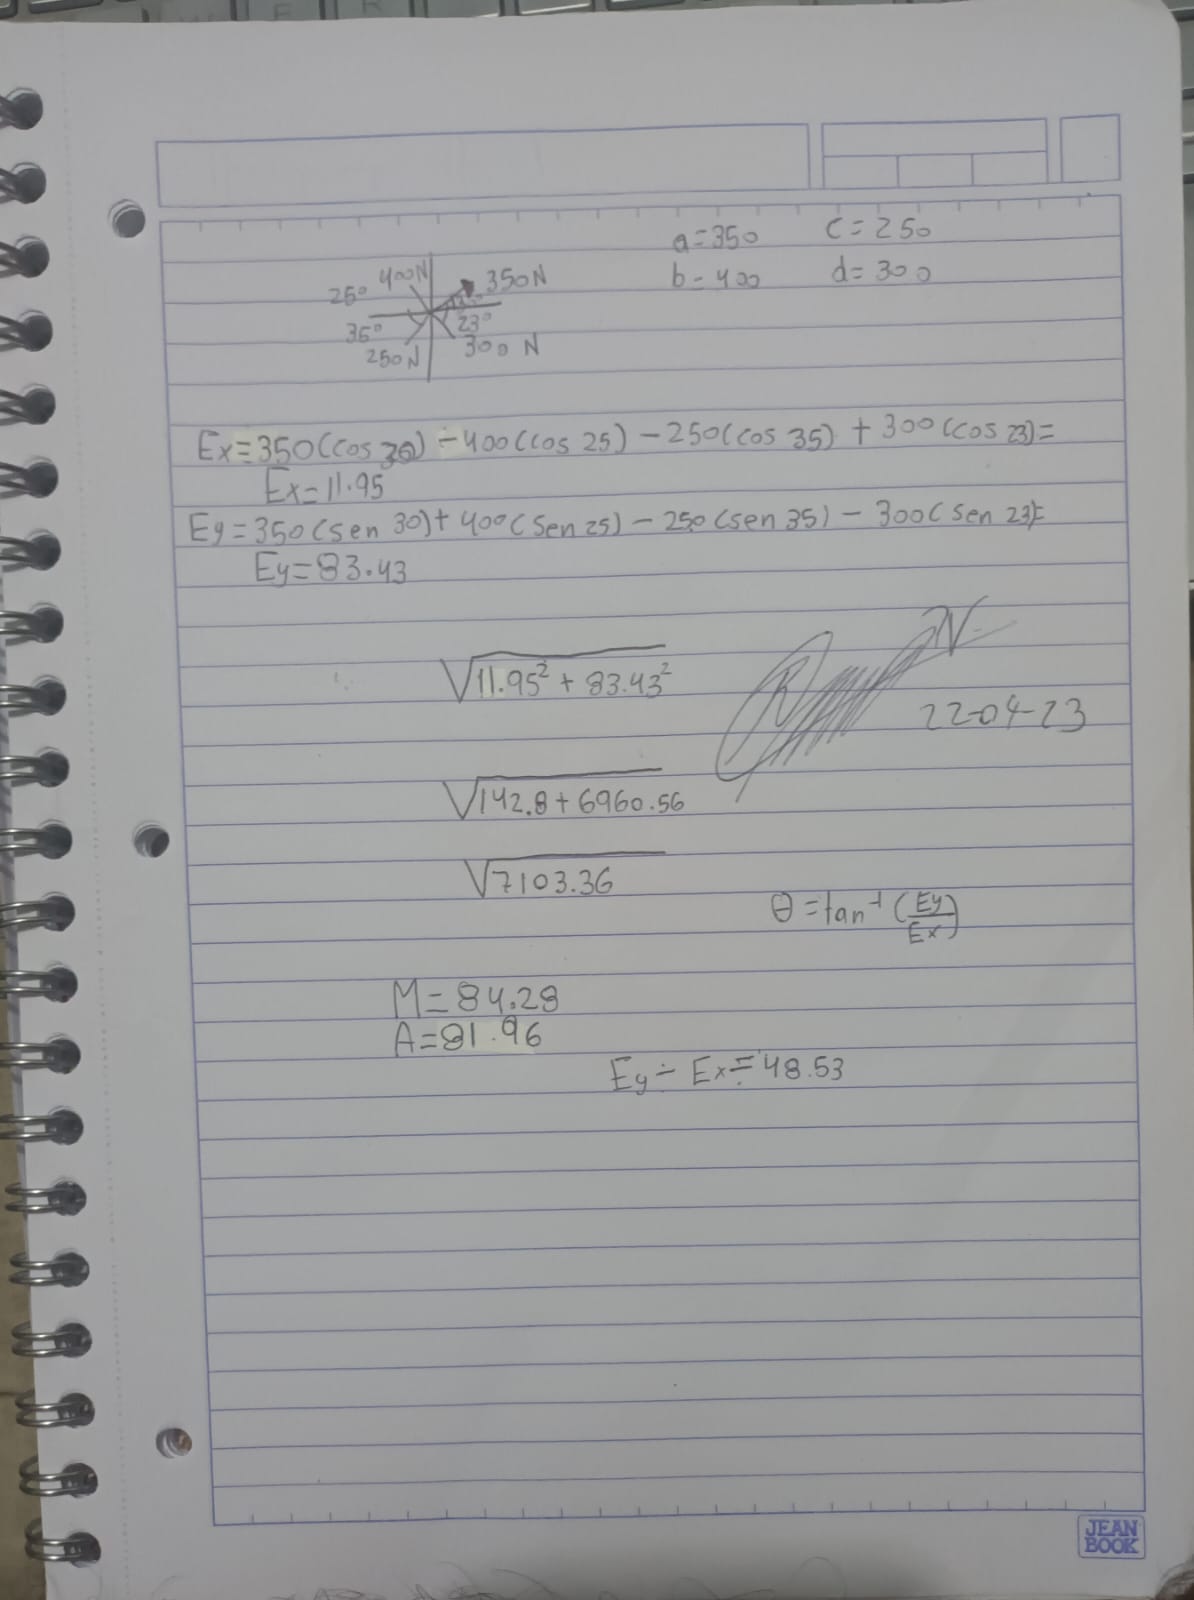 a=350 c=250
b=400 d=300
25° 400N 350N
35° 23°
250N 300 N
Ex=350(cos 30) -400(cos 25) -250(cos 35) + 300(cos 23)=
Ex=11.95
Ey=350(sen 30)+400(sen 25) - 250(sen 35) - 300(sen 23)=
Ey=83.43
√11.95²+83.43²
22-04-23
√142.8+6960.56
√7103.36
θ=tan⁻¹(Ey/Ex)
M=84.28
A=81.96
Ey÷Ex=48.53
JEAN
BOOK